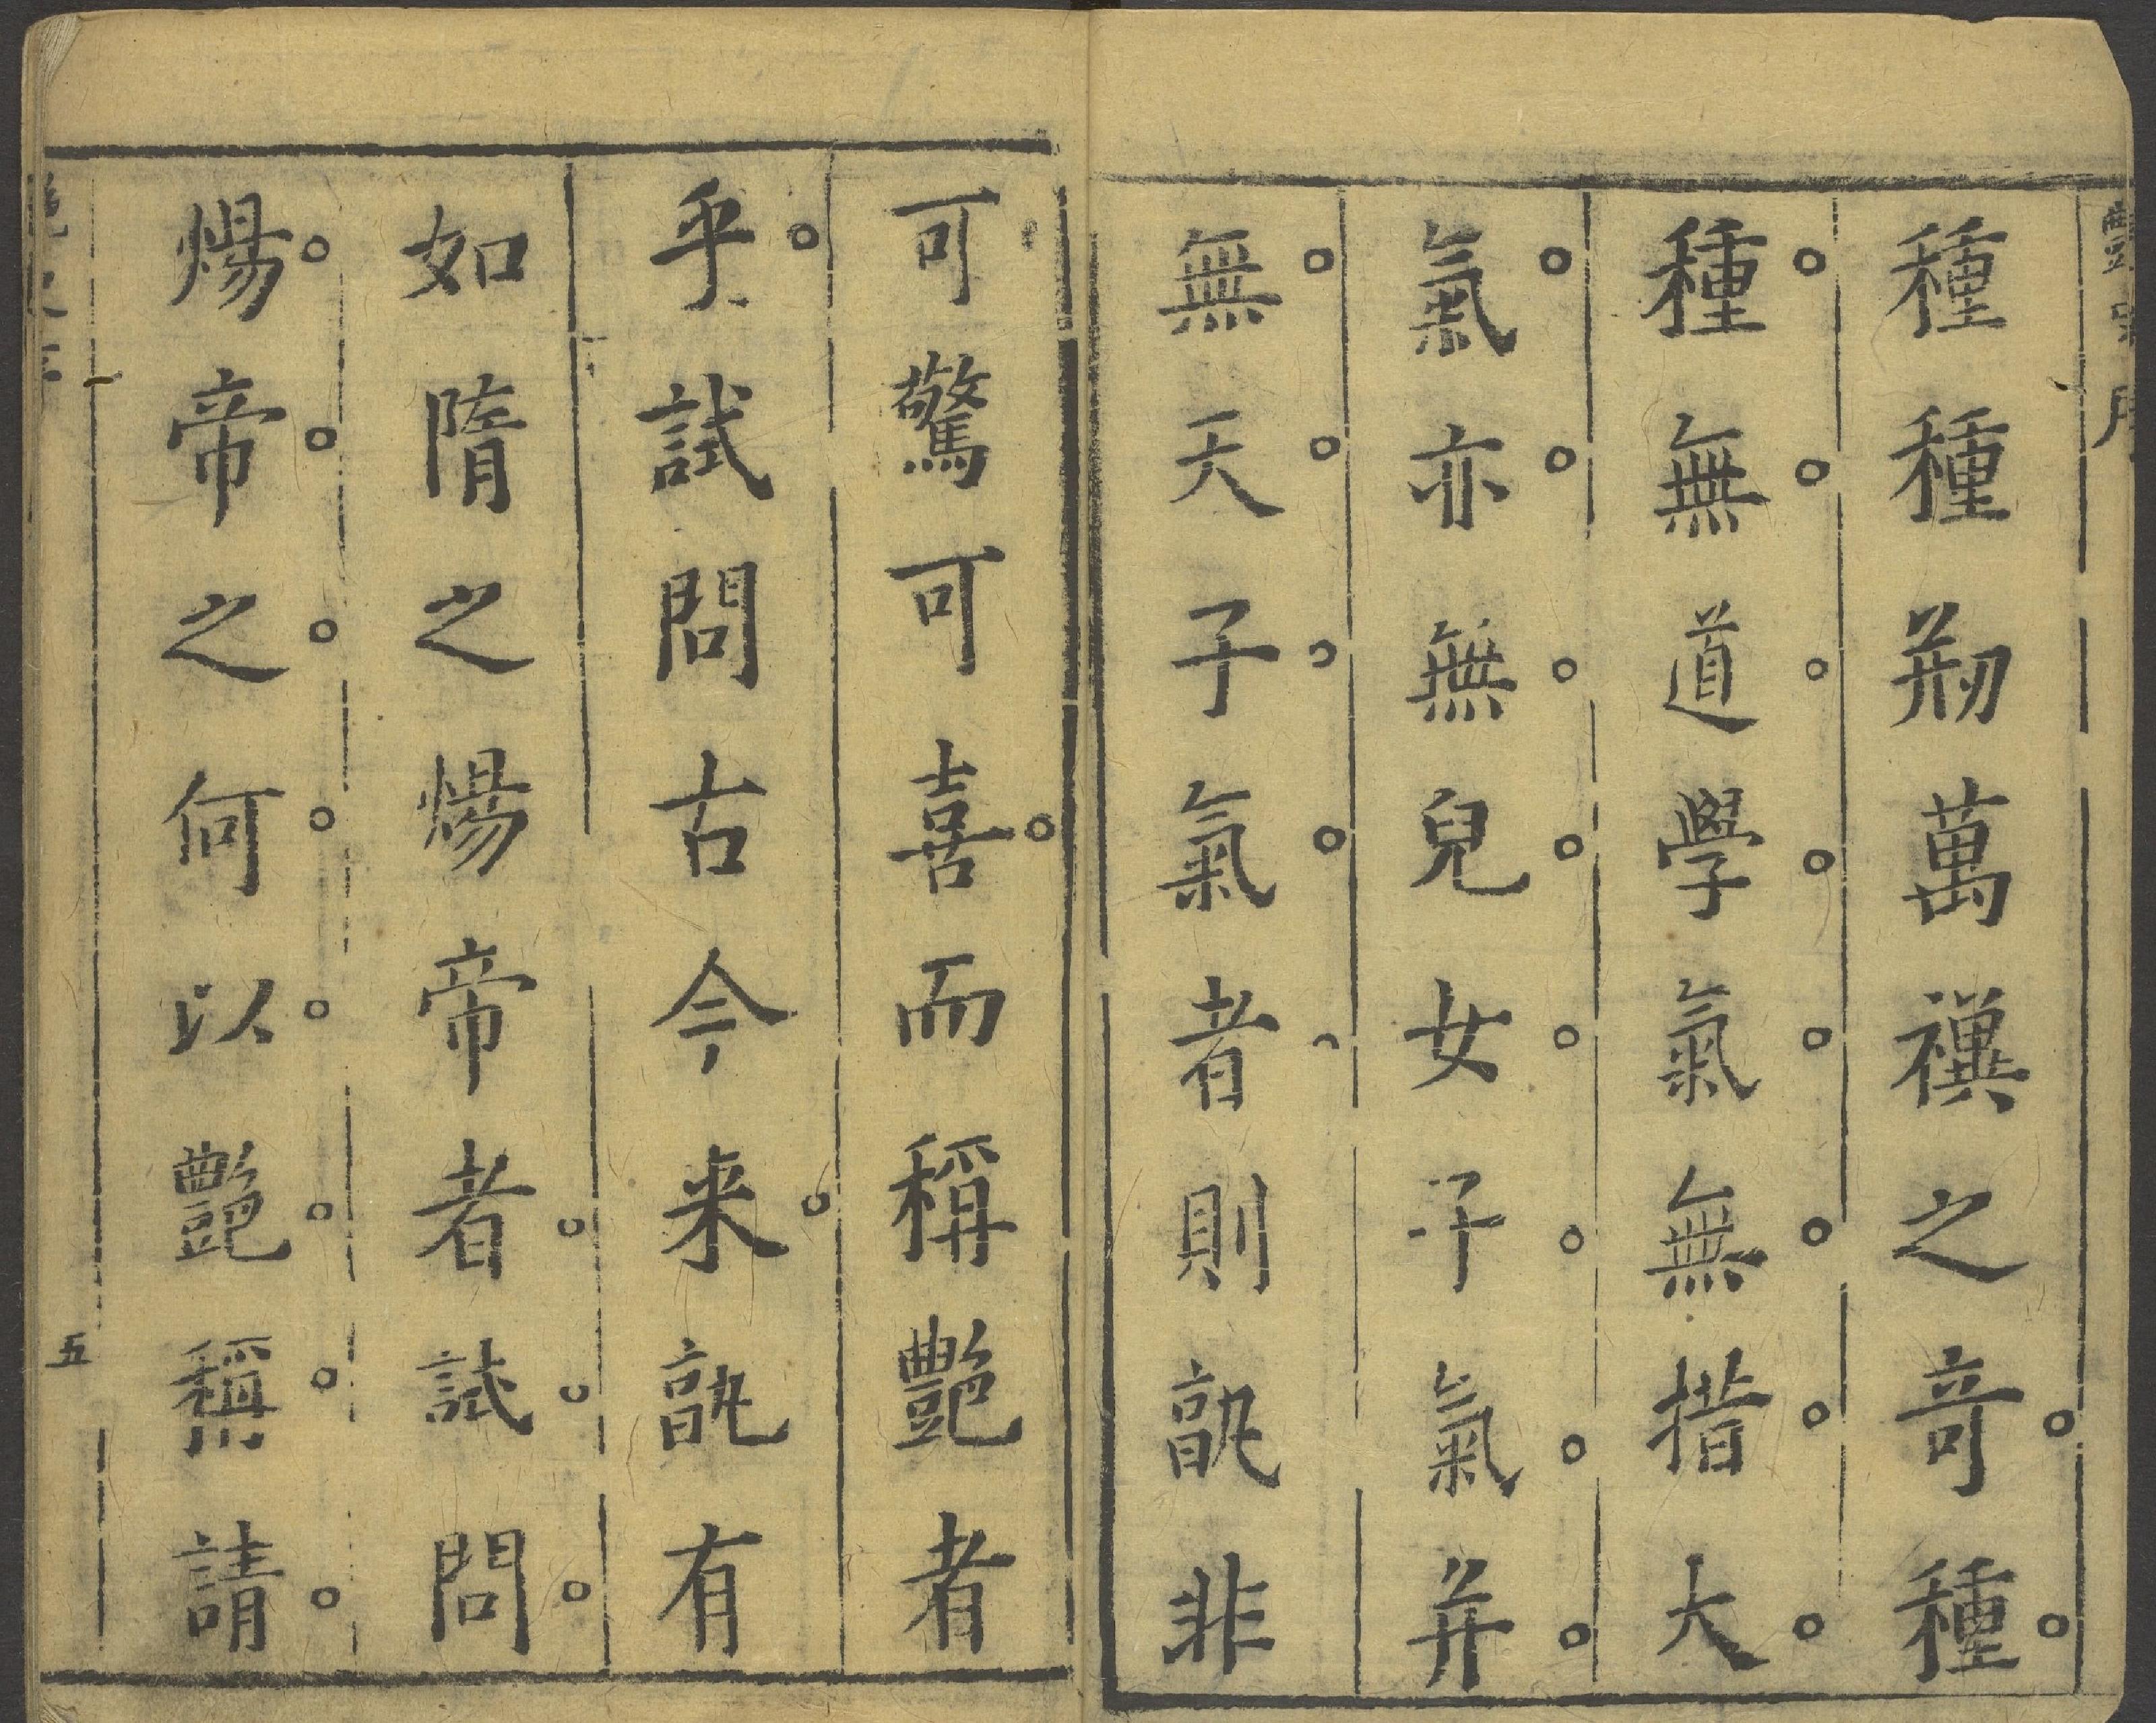 種種剏萬禩之竒種
種無道學氣無措大
氣亦無兒女子氣并
無天子氣者則孰非
可驚可喜而稱艷者
乎試問古今来孰有
如隋之煬帝者試問
煬帝之何以艷稱請
五